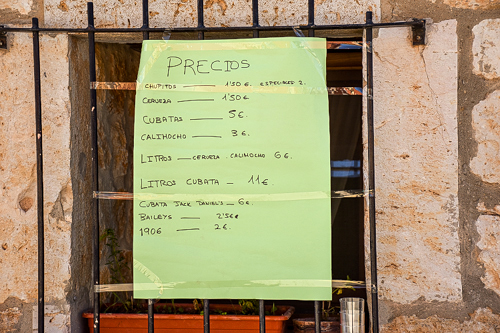 PRECIOS
CHUPITOS — 1'50 €. ESPECIALES 2.
CERVEZA — 1'50€
CUBATAS — 5€.
CALIMOCHO — 3€.
LITROS — CERVEZA. CALIMOCHO 6€.
LITROS CUBATA — 11€.
CUBATA JACK DANIEL'S — 6€.
BAILEYS — 2'5€
1906 — 2€.